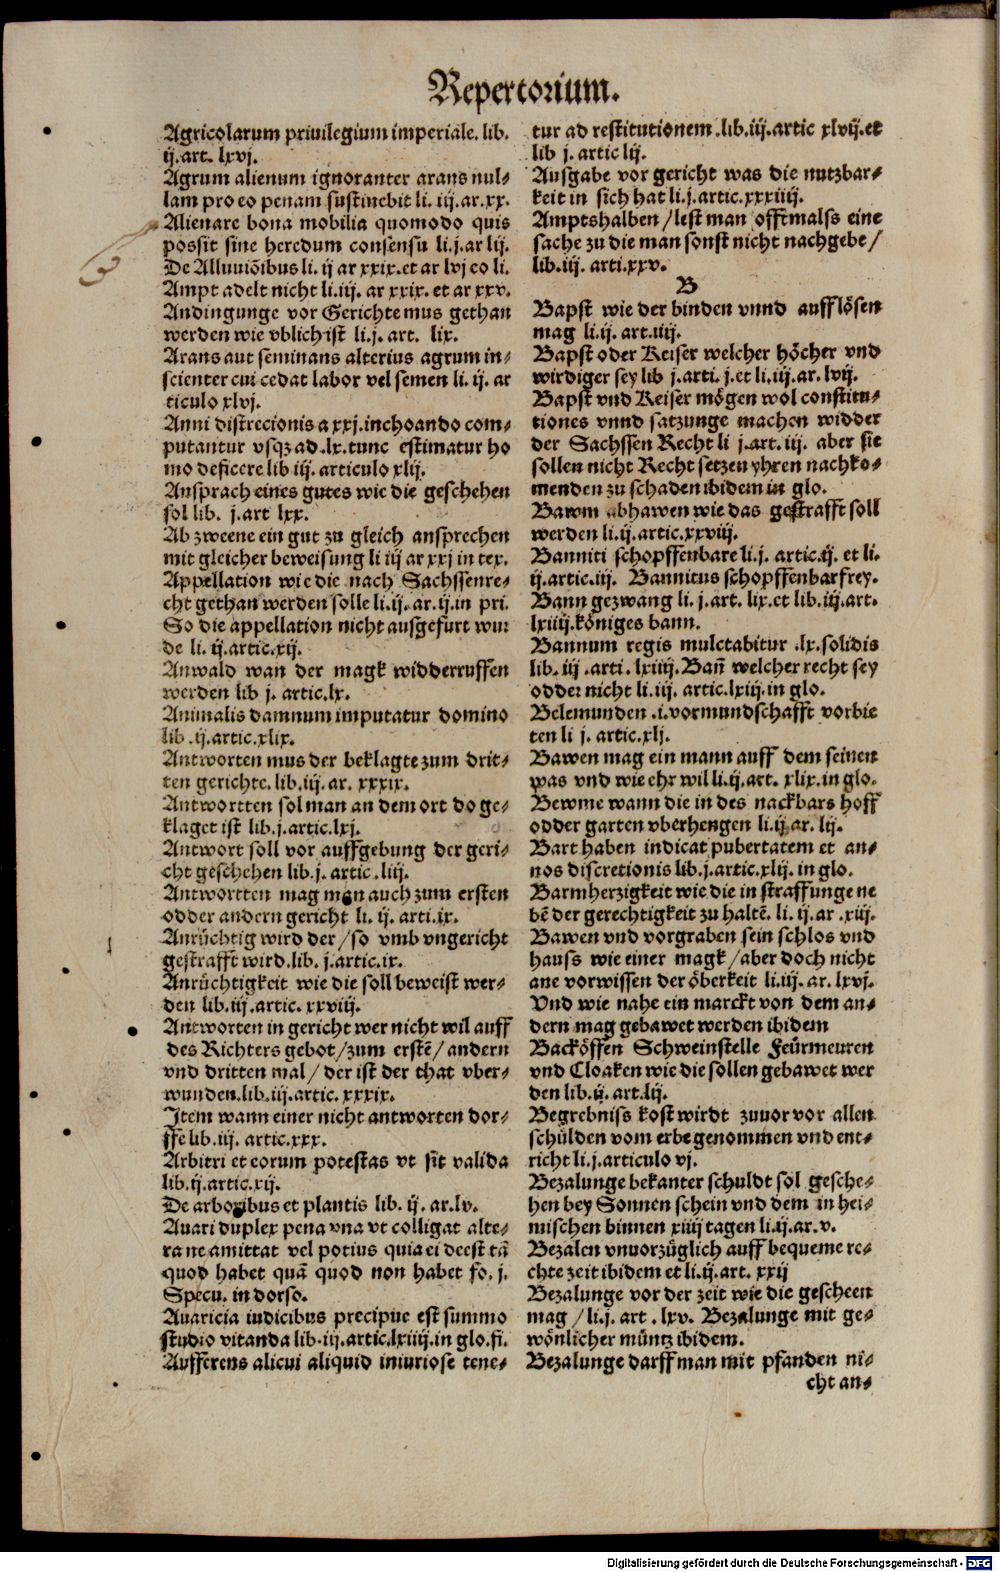 Repertorium.
Agricolarum priuilegium imperiale. lib.
ij. art. lxvj.
Agrum alienum ignoranter arans nul⸗
lam pro eo penam sustinebit li. iij. ar. xx.
Alienare bona mobilia quomodo quis
possit sine heredum consensu li. j. ar lij.
De Alluuiōibus li. ij ar xxix. et ar lvj eo li.
Ampt adelt nicht li. iij. ar xxix. et ar xxv.
Andingunge vor Gerichte mus gethan
werden wie vblich ist li. j. art. lix.
Arans aut seminans alterius agrum in⸗
scienter cui cedat labor vel semen li. ij. ar
ticulo xlvj.
Anni distrecionis a xxj. inchoando com⸗
putantur vsqz ad .lx. tunc estimatur ho
mo deficere lib iij. articulo xlij.
Ansprach eines gutes wie die geschehen
sol lib. j. art lxx.
Ab zweene ein gut zu gleich ansprechen
mit gleicher beweisung li iij ar xxj in tex.
Appellation wie die nach Sachssenre⸗
cht gethan werden solle li. ij. ar. ij. in pri.
So die appellation nicht ausgefurt wur
de li. ij. artic. xij.
Anwald wan der magk widderruffen
werden lib j. artic. lx.
Animalis damnum imputatur domino
lib .ij. artic. xlix.
Antworten mus der beklagte zum drit⸗
ten gerichte. lib. iij. ar. xxxix.
Antwortten sol man an dem ort do ge⸗
klaget ist lib. j. artic. lxj.
Antwort soll vor auffgebung der geri⸗
cht geschehen lib. j. artic. liij.
Antwortten mag man auch zum ersten
odder andern gericht li. ij. arti. ix.
Anrüchtig wird der / so vmb vngericht
gestrafft wird. lib. j. artic. ix.
Anrüchtigkeit wie die soll beweist wer⸗
den lib. iij. artic. xxviij.
Antworten in gericht wer nicht wil auff
des Richters gebot / zum erstē / andern
vnd dritten mal / der ist der that vber⸗
wunden. lib. iij. artic. xxxix.
Item wann einer nicht antworten dor⸗
ffe lib. iij. artic. xxx.
Arbitri et eorum potestas vt sit valida
lib. ij. artic. xij.
De arboribus et plantis lib. ij. ar. lv.
Auari duplex pena vna vt colligat alte⸗
ra ne amittat vel potius quia ei deest tā
quod habet quā quod non habet fo. j.
Specu. in dorso.
Auaricia iudicibus precipue est summo
studio vitanda lib. iij. artic. lxiiij. in glo. fi.
Aufferens alicui aliquid iniuriose tene⸗
tur ad restitutionem .lib. iij. artic xlvij. et
lib j. artic lij.
Ausgabe vor gericht was die nutzbar⸗
keit in sich hat li. j. artic. xxxiiij.
Amptshalben / lest man offtmalss eine
sache zu die man sonst nicht nachgebe /
lib. iij. arti. xxv.
B
Bapst wie der binden vnnd aufflösen
mag li. ij. art. iiij.
Bapst oder Keiser welcher höcher vnd
wirdiger sey lib j. arti. j. et li. iij. ar. lvij.
Bapst vnd Keiser mögen wol constitu⸗
tiones vnnd satzunge machen widder
der Sachssen Recht li j. art. iij. aber sie
sollen nicht Recht setzen yhren nachko⸗
menden zu schaden ibidem in glo.
Bawm abhawen wie das gestrafft soll
werden li. ij. artic. xxviij.
Banniti schopffenbare li. j. artic. ij. et li.
ij. artic. iij. Bannitus schopffenbarfrey.
Bann gezwang li. j. art. lix. et lib. iij. art.
lxiiij. königes bann.
Bannum regis mulctabitur .lx. solidis
lib. iij .arti. lxiiij. Bañ welcher recht sey
odder nicht li. iij. artic. lxiij. in glo.
Belemunden .i. vormundschafft vorbie
ten li j. artic. xlj.
Bawen mag ein mann auff dem seinen
was vnd wie ehr wil li. ij. art. xlix. in glo.
Bewme wann die in des nackbars hoff
odder garten vberhengen li. ij. ar. lij.
Bart haben indicat pubertatem et an⸗
nos discretionis lib. j. artic. xlij. in glo.
Barmherzigkeit wie die in straffunge ne
bē der gerechtigkeit zu haltē. li. ij. ar .xiij.
Bawen vnd vorgraben sein schlos vnd
hauss wie einer magk / aber doch nicht
ane vorwissen der öberkeit li. iij. ar. lxvj.
Vnd wie nahe ein marckt von dem an⸗
dern mag gebawet werden ibidem
Backöffen Schweinstelle Feürmeuren
vnd Cloaken wie die sollen gebawet wer
den lib. ij. art. lij.
Begrebniss kost wirdt zuuor vor allen
schülden vom erbe genommen vnd ent⸗
richt li. j. articulo vj.
Bezalunge bekanter schuldt sol gesche⸗
hen bey Sonnen schein vnd dem in hei⸗
mischen binnen xiiij tagen li. ij. ar. v.
Bezalen vnuorzüglich auff bequeme re⸗
chte zeit ibidem et li. ij. art. xxij
Bezalunge vor der zeit wie die gescheen
mag / li. j. art . lxv. Bezalunge mit ge⸗
wönlicher müntz ibidem.
Bezalunge darff man mit pfanden ni⸗
cht an⸗
Digitalisierung gefördert durch die Deutsche Forschungsgemeinschaft - DFG